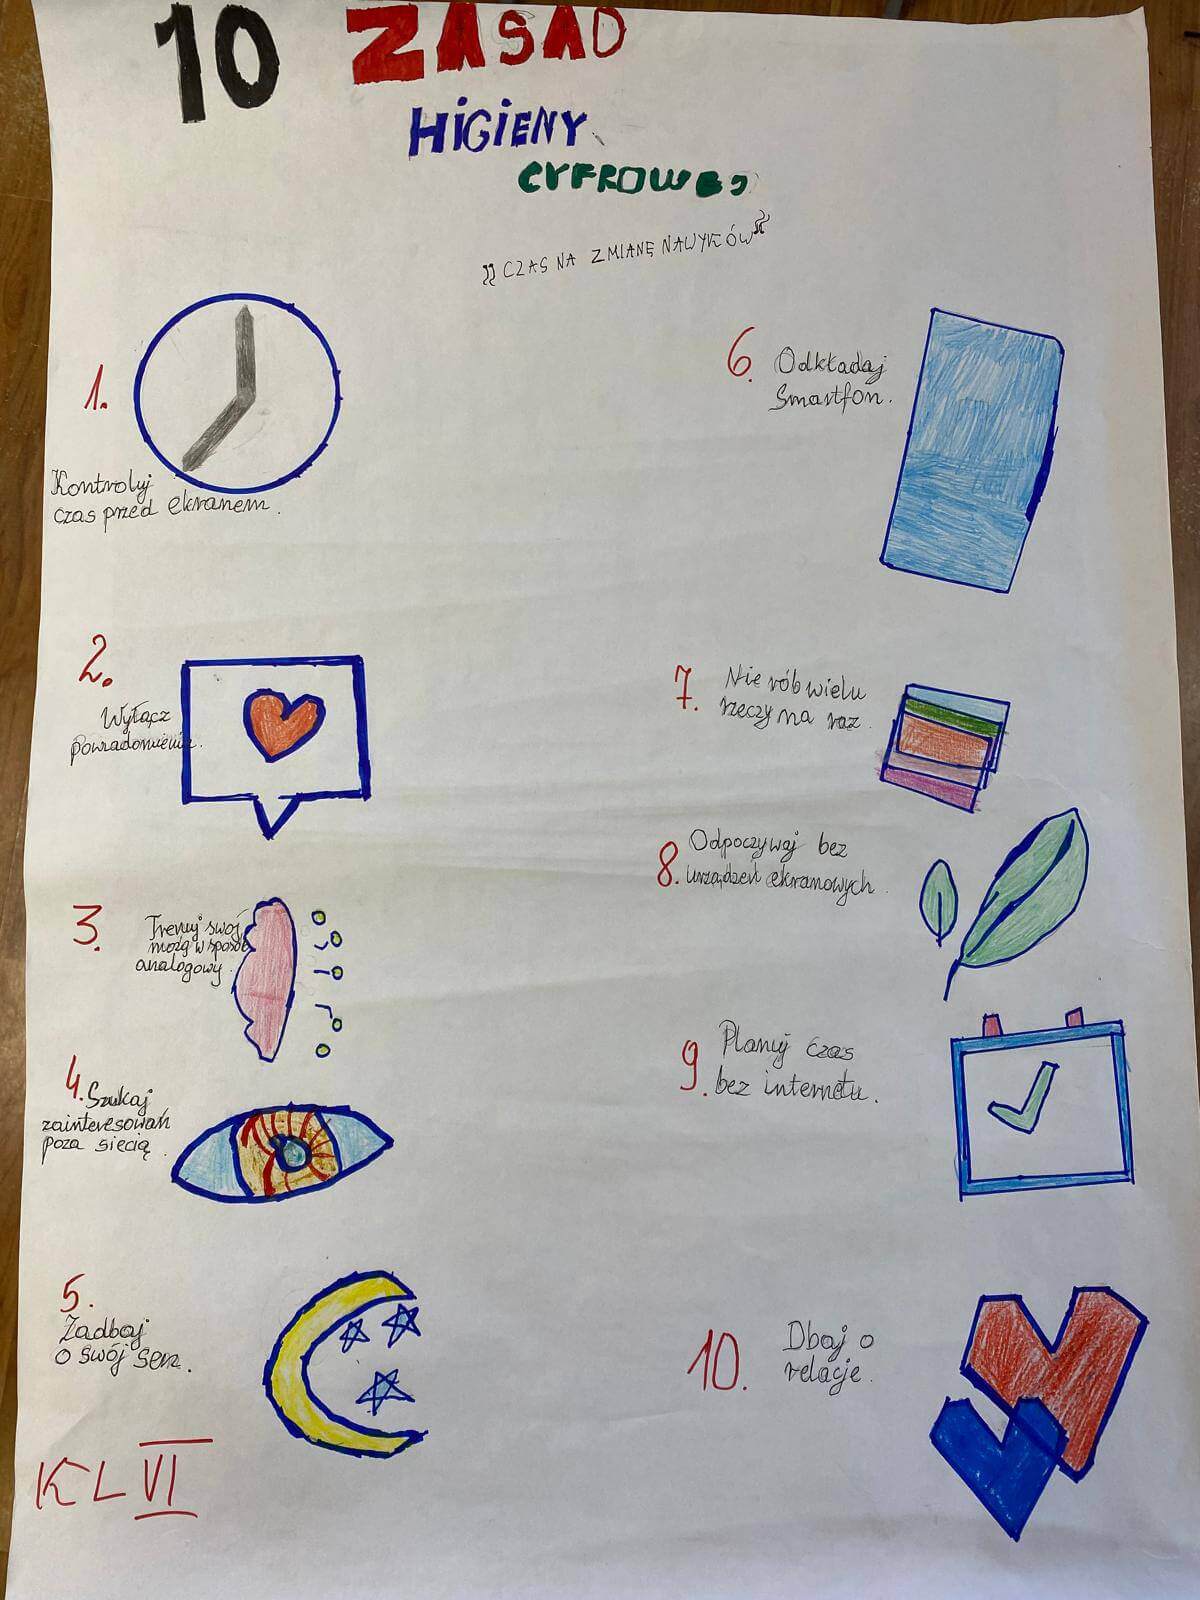 10 ZASAD
HiGiENY
CYFROWEJ
„CZAS NA ZMIANĘ NAWYKÓW"
1.
Kontroluj
czas przed ekranem.
2.
Wyłącz
powiadomienia.
3.
Trenuj swój
mózg w sposób
analogowy.
4. Szukaj
zainteresowań
poza siecią.
5.
Zadbaj
o swój sen.
KL VI
6. Odkładaj
Smartfon.
7. Nie rób wielu
rzeczy na raz.
8. Odpoczywaj bez
urządzeń ekranowych.
9. Planuj czas
bez internetu.
10. Dbaj o
relacje.